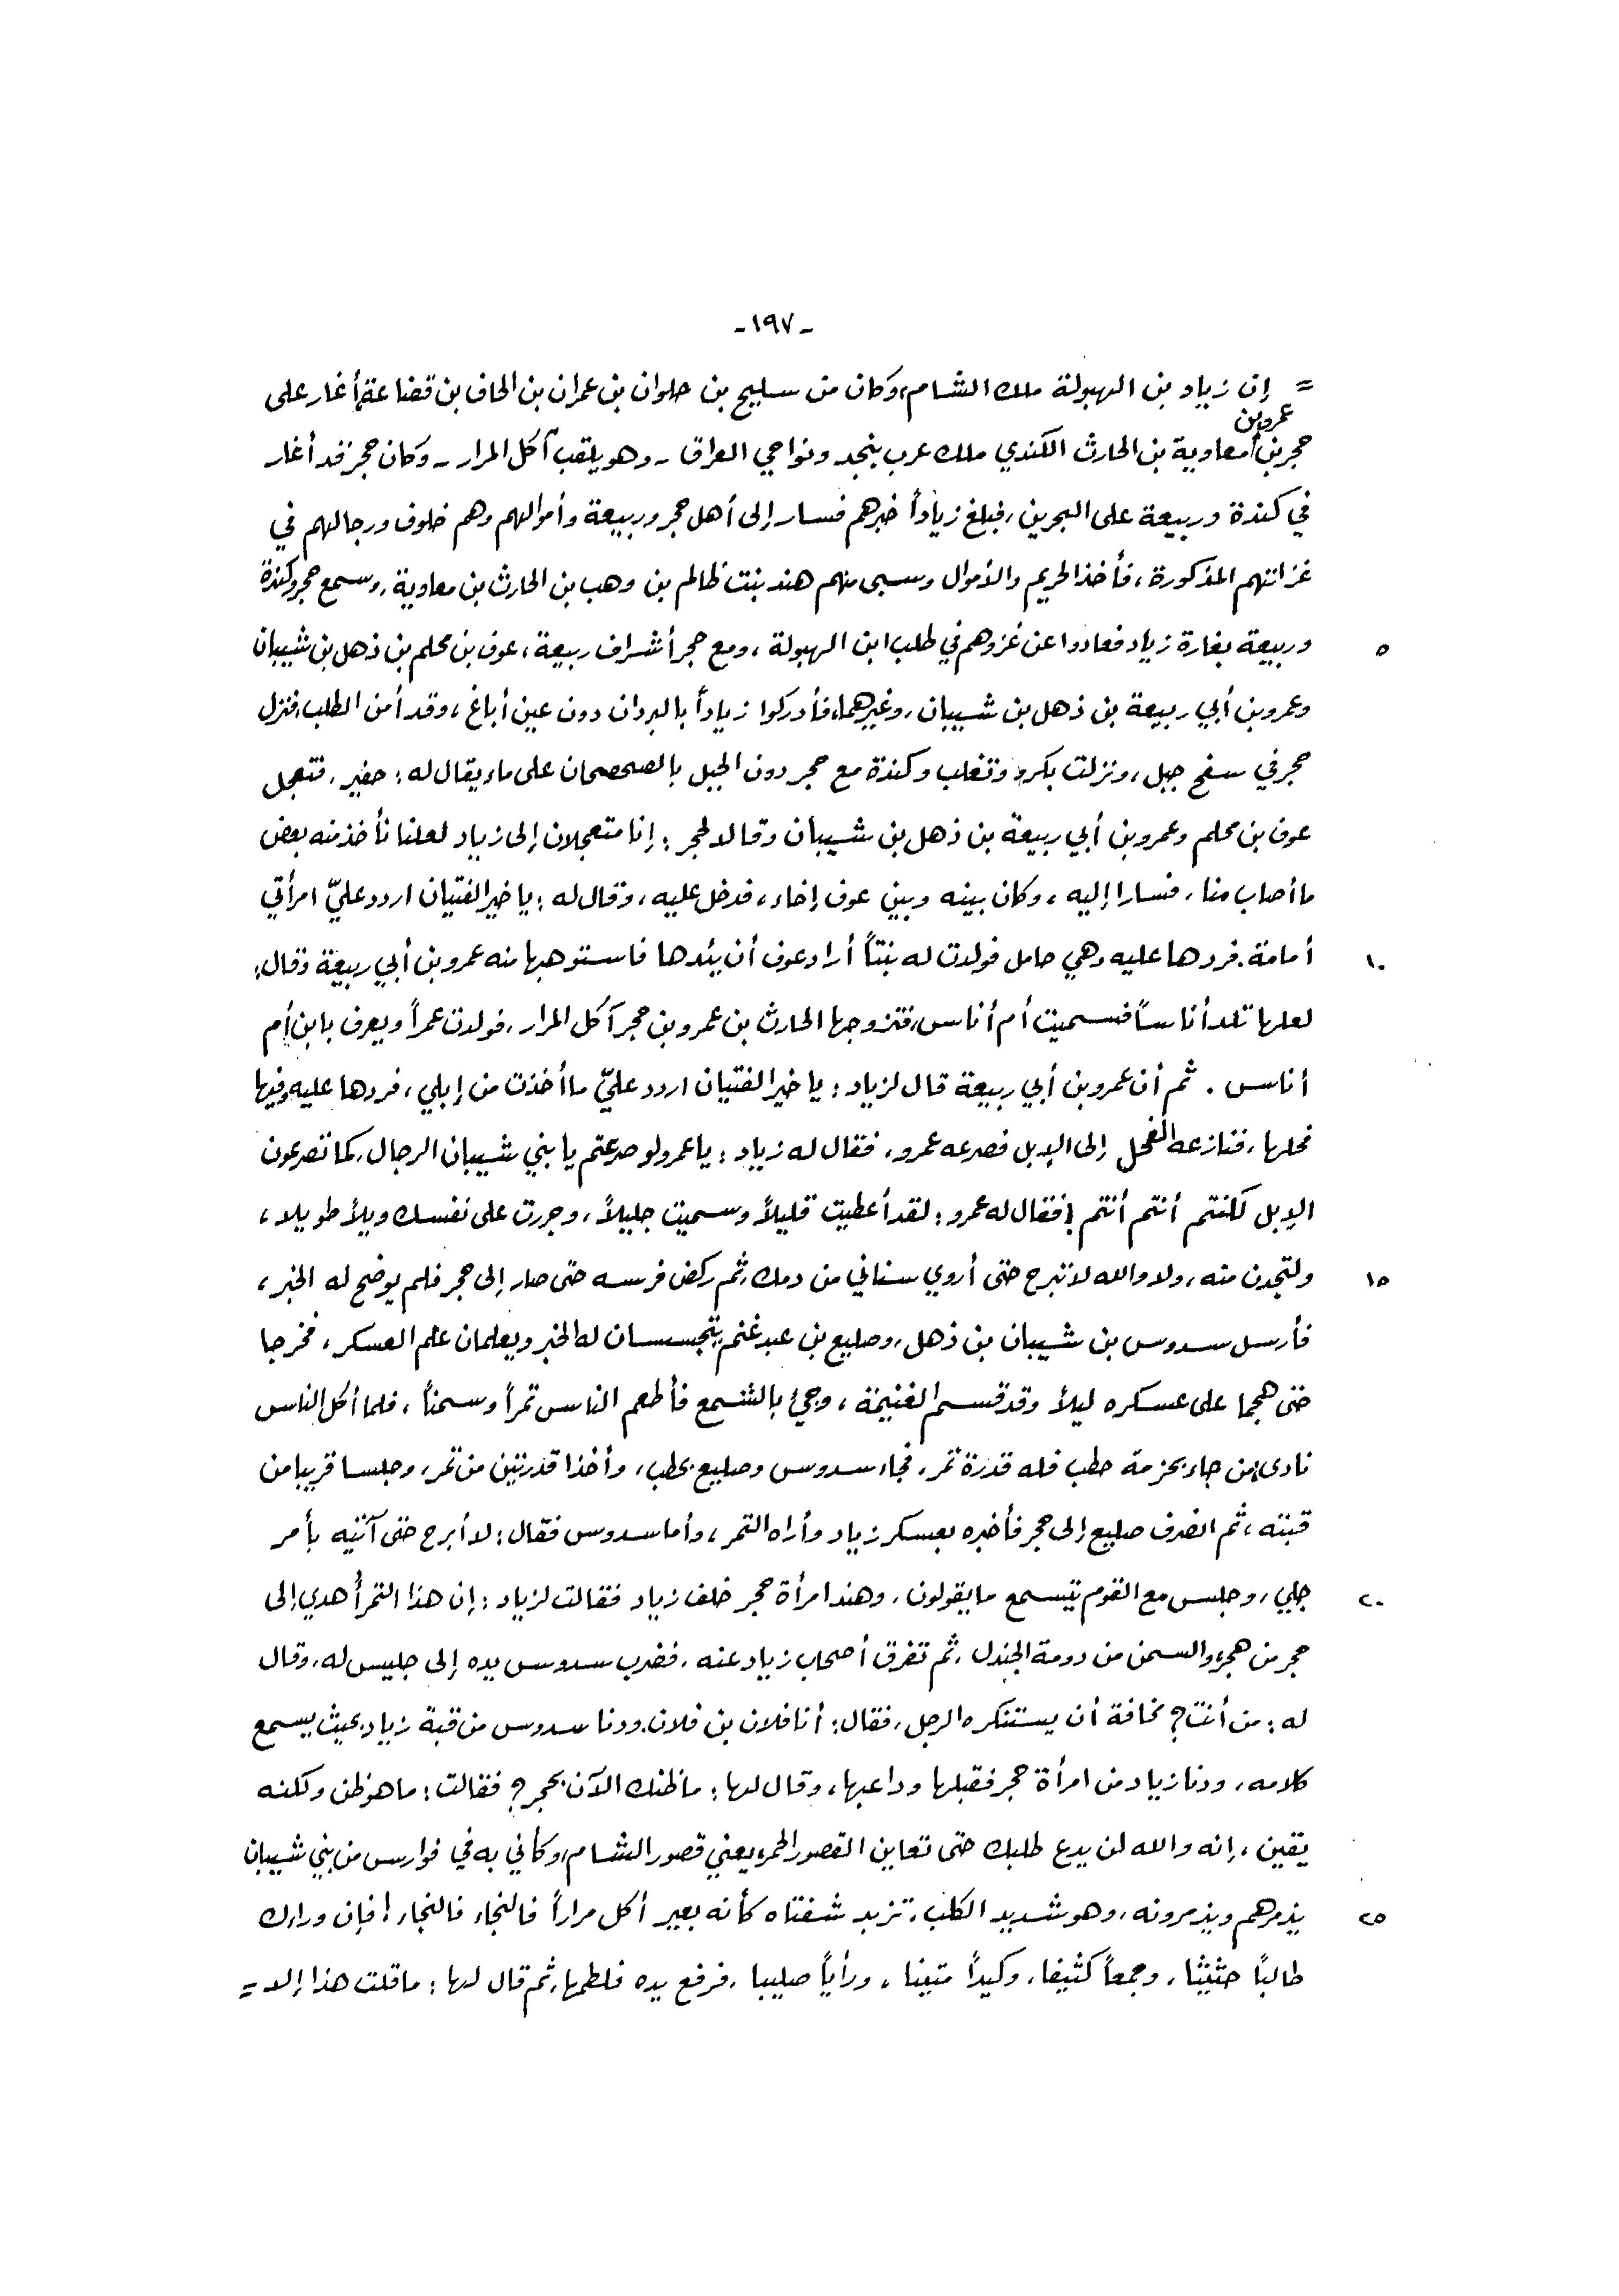 -١٩٧-
= إن زياد بن الهبولة ملك الشام، وكان من سليح بن حلوان بن عمران بن الحاف بن قضاعة، أغار على
عمرو بن
حجر بن معاوية بن الحارث الكندي ملك عرب بنجد ونواحي العراق - وهو يلقب آكل المرار - وكان حجر قد أغار
في كندة وربيعة على البحرين، فبلغ زياداً خبرهم فسار إلى أهل حجر وربيعة وأموالهم وهم خلوف ورجالهم في
غزاتهم المذكورة، فأخذ الحريم والأموال وسبى منهم هند بنت ظالم بن وهب بن الحارث بن معاوية، وسمع حجر وكندة
٥ وربيعة بغارة زياد فعادوا عن غزوهم في طلب ابن الهبولة، ومع حجر أشراف ربيعة، عوف بن محلم بن ذهل بن شيبان
وعمرو بن أبي ربيعة بن ذهل بن شيبان، وغيرهما، فأدركوا زياداً بالبردان دون عين أباغ، وقد أمن الطلب، فنزل
حجر في سفح جبل، ونزلت بكر وتغلب وكندة مع حجر دون الجبل بالصحصحان على ماء يقال له: حفير، فتعجل
عوف بن محلم وعمرو بن أبي ربيعة بن ذهل بن شيبان وقالا لحجر: إنا متعجلان إلى زياد لعلنا نأخذ منه بعض
ما أصاب منا، فسارا إليه، وكان بينه وبين عوف إخاء، فدخل عليه، وقال له: يا خير الفتيان اردد عليّ امرأتي
١٠ أمامة. فردها عليه وهي حامل فولدت له بنتاً أراد عوف أن يئدها فاستوهبها منه عمرو بن أبي ربيعة وقال:
لعلها تلد أناساً فسميت أم أناس، فتزوجها الحارث بن عمرو بن حجر آكل المرار، فولدت عمراً ويعرف بابن أم
أناس. ثم أن عمرو بن أبي ربيعة قال لزياد: يا خير الفتيان اردد عليّ ما أخذت من إبلي، فردها عليه وفيها
فحلها، فنازعه الفحل إلى الإبل فصرعه عمرو، فقال له زياد: يا عمرو لو صرعتم يا بني شيبان الرجال، كما تصرعون
الإبل لكنتم أنتم أنتم! فقال له عمرو: لقد أعطيت قليلاً وسميت جليلاً، وجررت على نفسك ويلاً طويلا،
١٥ ولتجدن منه، ولا والله لا تبرح حتى أروي سناني من دمك، ثم ركض فرسه حتى صار إلى حجر فلم يوضح له الخبر،
فأرسل سدوس بن شيبان بن ذهل، وصليع بن عبد غنم يتجسسان له الخبر ويعلمان علم العسكر، فخرجا
حتى هجما على عسكره ليلاً وقد قسم الغنيمة، وجيء بالشمع فأطعم الناس تمراً وسمناً، فلما أكل الناس
نادى من جاء بحزمة حطب فله قدرة تمر، فجاء سدوس وصليع بحطب، وأخذا قدرتين من تمر، وجلسا قريبا من
قبته، ثم انصرف صليع إلى حجر فأخبره بعسكر زياد وأراه التمر، وأما سدوس فقال: لا أبرح حتى آتيه بأمر
٢٠ جلي، وجلس مع القوم يتسمع ما يقولون، وهند امرأة حجر خلف زياد فقالت لزياد: إن هذا التمر أُهدي إلى
حجر من هجر، والسمن من دومة الجندل، ثم تفرق أصحاب زياد عنه، فضرب سدوس يده إلى جليس له، وقال
له: من أنت؟ مخافة أن يستنكره الرجل، فقال: أنا فلان بن فلان. ودنا سدوس من قبة زياد بحيث يسمع
كلامه، ودنا زياد من امرأة حجر فقبلها وداعبها، وقال لها: ما ظنك الآن بحجر؟ فقالت: ما هو ظن ولكنه
يقين، إنه والله لن يدع طلبك حتى تعاين القصور الحمر يعني قصور الشام، وكأني به في فوارس من بني شيبان
٢٥ يذمرهم ويذمرونه، وهو شديد الكلب، تزبد شفتاه كأنه بعير أكل مراراً فالنجاء فالنجاء! فإن وراءك
طالباً حثيثا، وجمعاً كثيفا، وكيداً متينا، ورأياً صليبا، فرفع يده فلطمها، ثم قال لها: ما قلت هذا إلا =